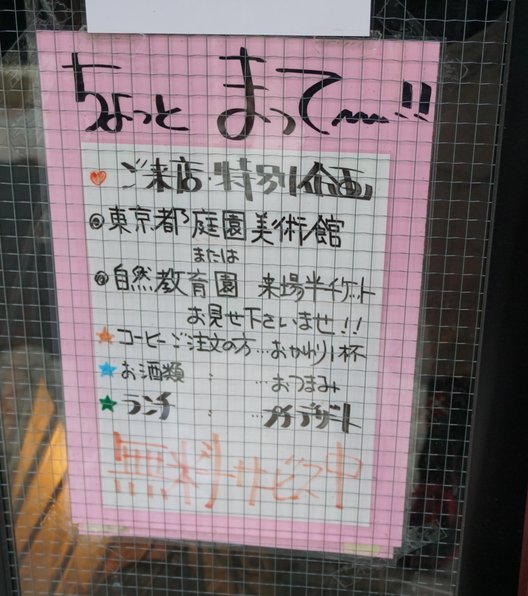 ちょっと まって〜!!
ご来店特別企画
東京都庭園美術館
または
自然教育園 来場半チケット
お見せ下さいませ!!
コーヒーご注文の方…おかわり1杯
お酒類 〃 …おつまみ
ランチ 〃 …プチデザート
無料サービス中